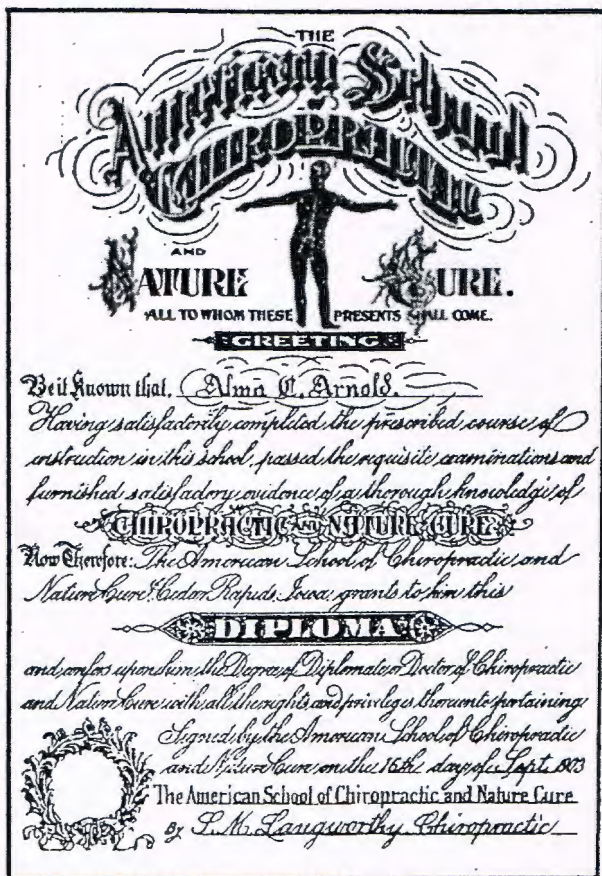 THE
American School
OF
CHIROPRACTIC
AND
NATURE CURE.
ALL TO WHOM THESE PRESENTS SHALL COME.
GREETING
Be it Known that, Alma C. Arnold.
Having satisfactorily completed the prescribed course of
instruction in this school, passed the requisite examinations and
furnished satisfactory evidence of a thorough knowledge of
CHIROPRACTIC AND NATURE CURE
Now Therefore: The American School of Chiropractic and
Nature Cure Cedar Rapids, Iowa, grants to him this
DIPLOMA
and confers upon him the Degree of Diplomate or Doctor of Chiropractic
and Nature Cure with all the rights and privileges thereunto pertaining
Signed by the American School of Chiropractic
and Nature Cure on the 16th day of Sept. 1903
The American School of Chiropractic and Nature Cure
By S. M. Langworthy Chiropractic